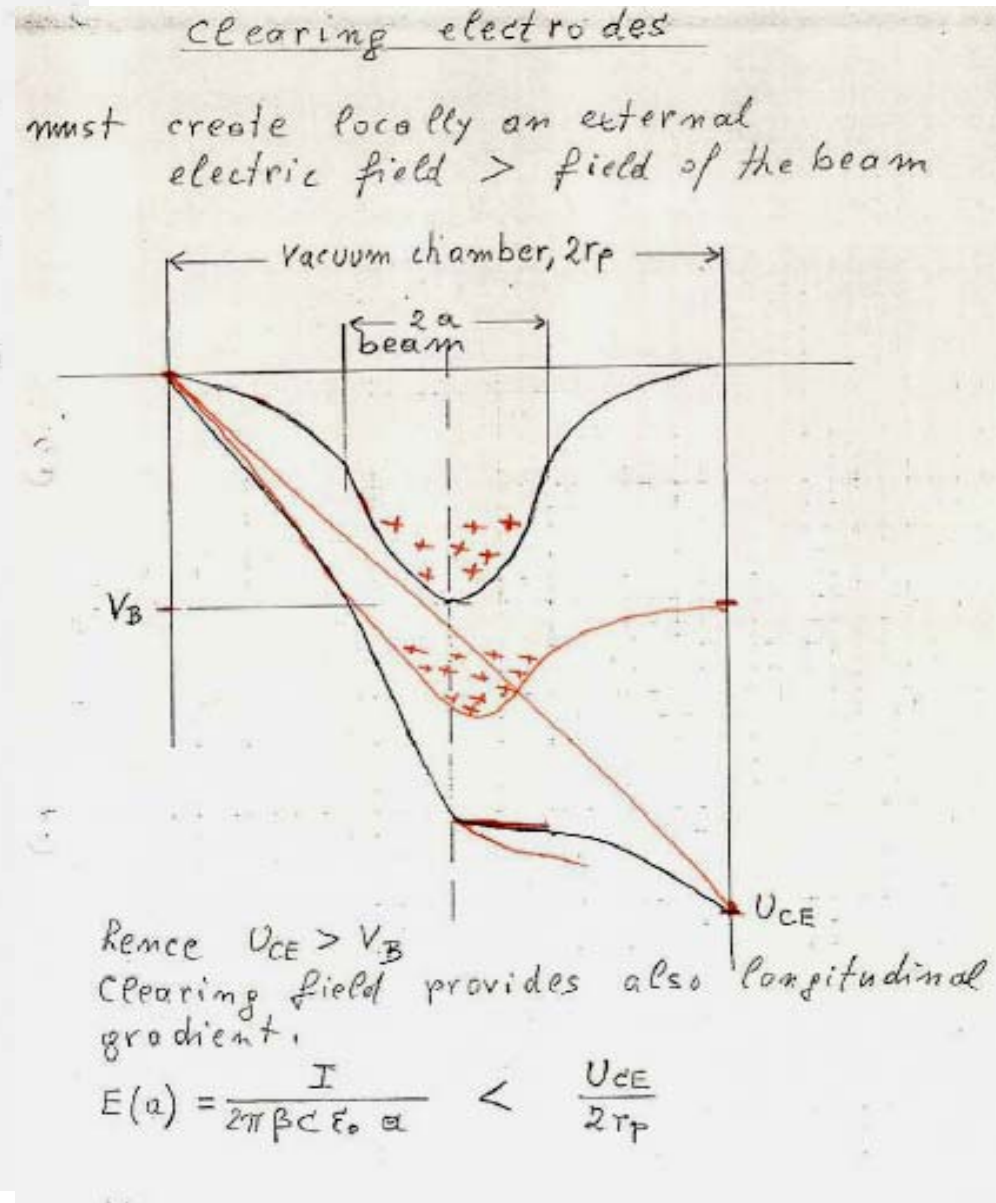 Clearing electrodes
must create locally an external
electric field > field of the beam
vacuum chamber, 2rp
2a
beam
VB
UCE
hence UCE > VB
Clearing field provides also longitudinal
gradient.
E(a) = I / 2π β c ε0 a < UCE / 2rp